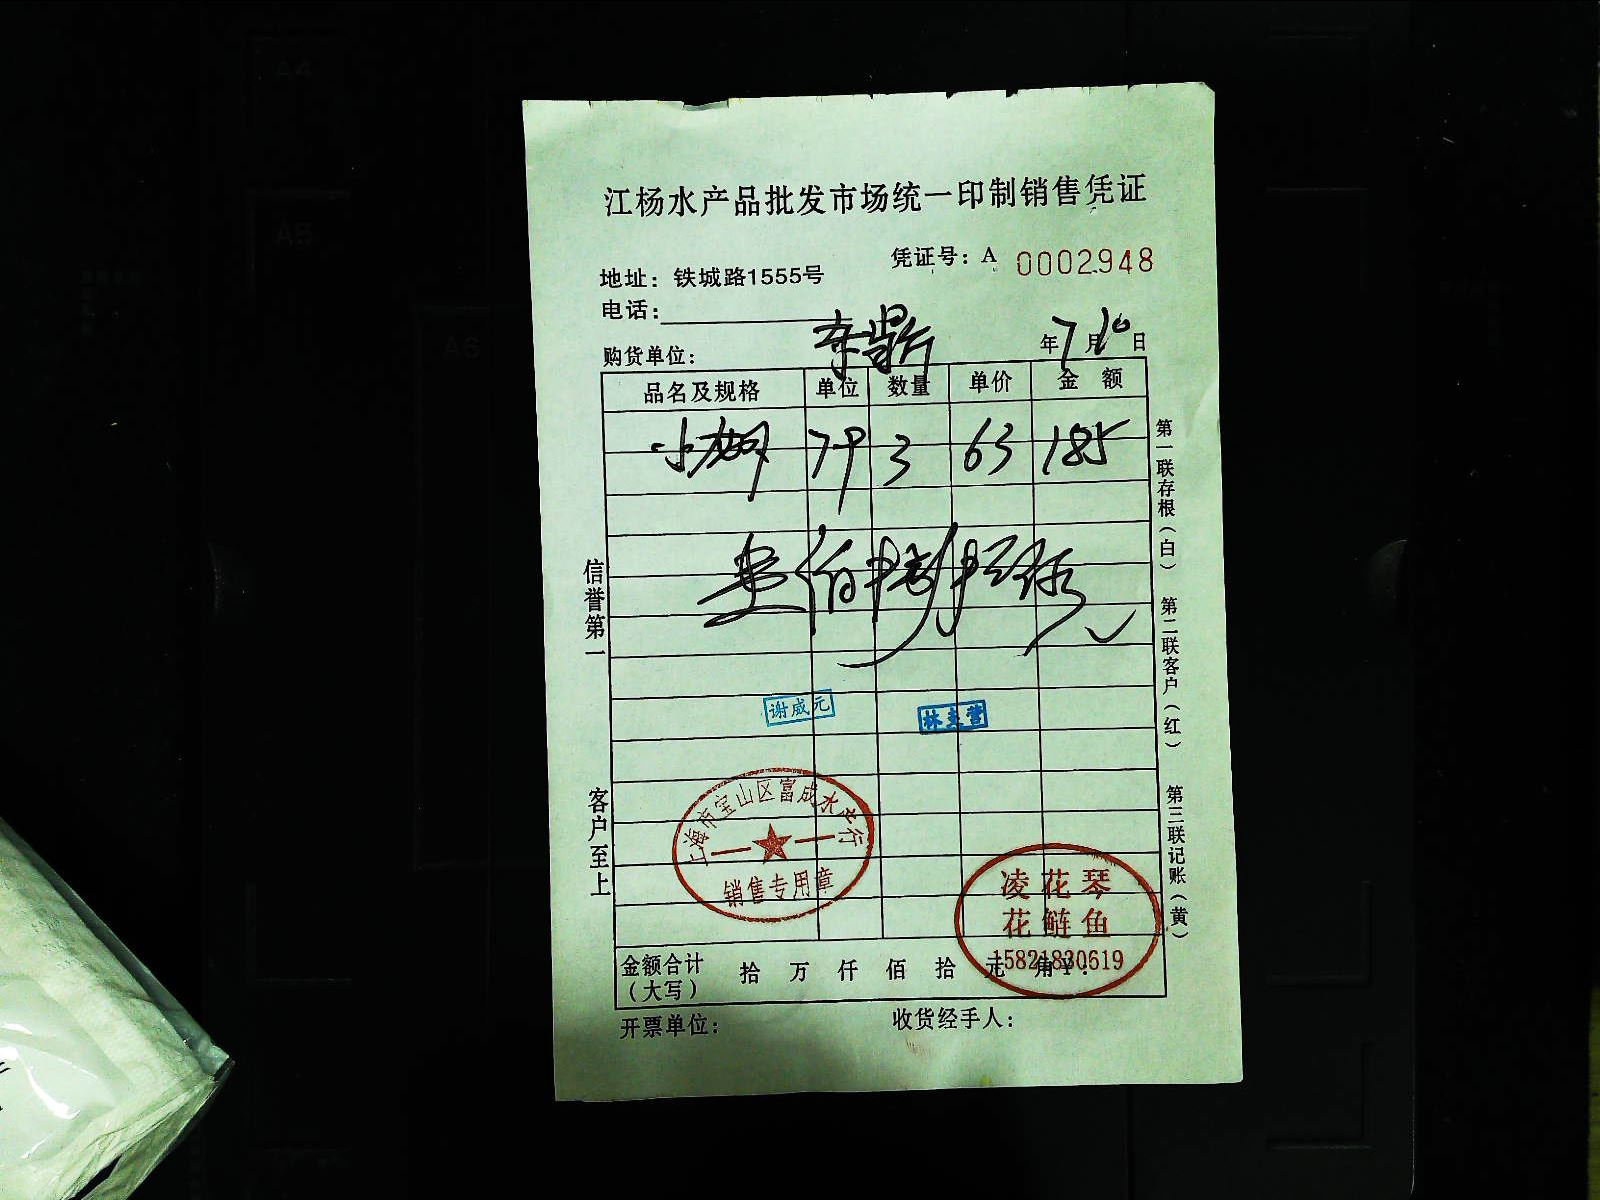 江杨水产品批发市场统一印制销售凭证
凭证号：A 0002948
地址：铁城路1555号
电话：
购货单位：
年7月10日
品名及规格 单位 数量 单价 金 额
3 63 185
信誉第一
客户至上
第一联存根（白） 第二联客户（红） 第三联记账（黄）
谢成元
上海市宝山区富成水产行
销售专用章
凌花琴
花鲢鱼
15821830619
金额合计（大写） 拾 万 仟 佰 拾 元 角 ¥：
开票单位： 收货经手人：
A4
A5
A6